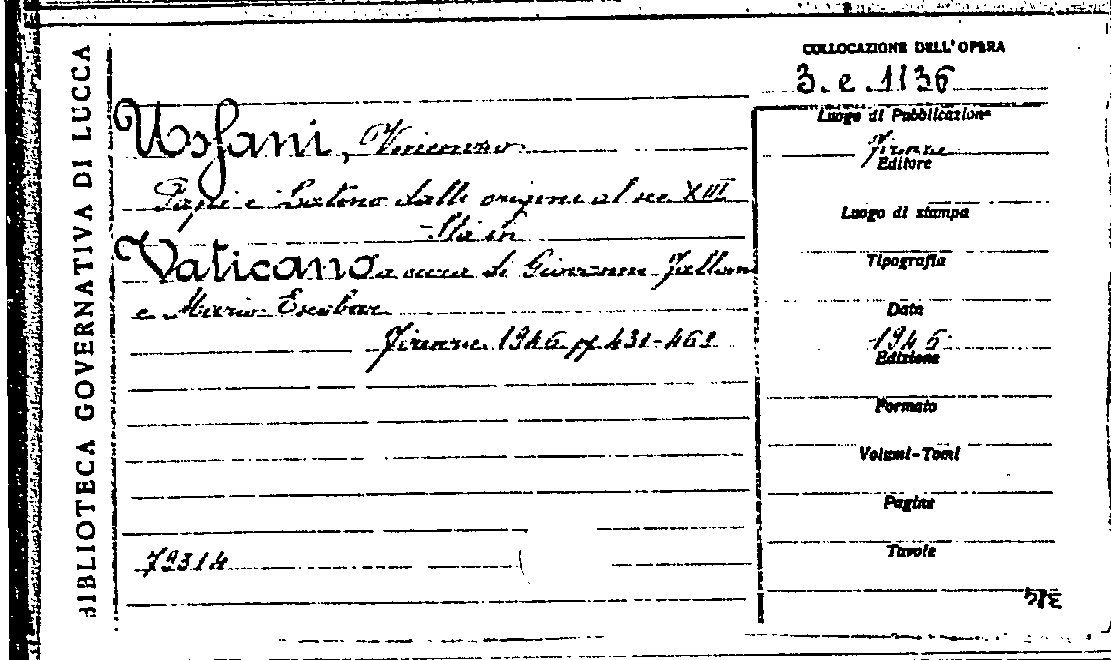 BIBLIOTECA GOVERNATIVA DI LUCCA
COLLOCAZIONE DELL'OPERA
3. e. 1136
Usfani, Vincenzo
Papi e Latino dalle origini al sec XIII
Sta in
Vaticano a cura di Giovanni Fallani
e Mario Escobar
Firenze 1946 pp 431-461
79314
Luogo di Pubblicazione
Firenze
Editore
Luogo di stampa
Tipografia
Data
1946
Edizione
Formato
Volumi-Tomi
Pagine
Tavole